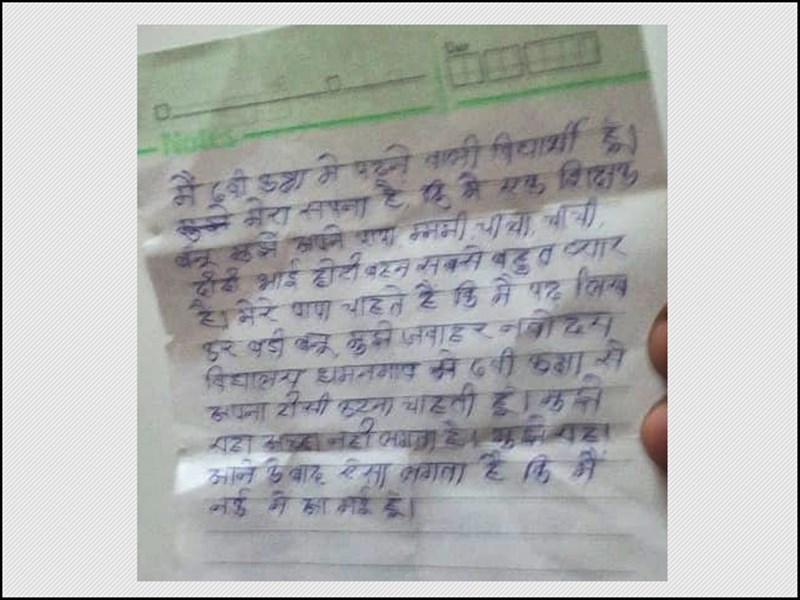 Date
Notes
मै 6वी कक्षा मे पढ़ने वाली विद्यार्थी हूं।
मेरा सपना है, कि मै एक शिक्षक
बनू मुझे अपने पापा, मम्मी, चाचा, चाची,
दीदी भाई छोटी बहन सबसे बहुत प्यार
है। मेरे पापा चाहते है कि मै पढ़ लिख
कर बडी बनू, मुझे जवाहर नवोदय
विद्यालय धमनगाव मे 6वी कक्षा से
अपना टीसी करना चाहती हूं। मुझे
यहा अच्छा नही लगता है। मुझे यहा
आने के बाद ऐसा लगता है कि मै
नर्क मे आ गई हूं।